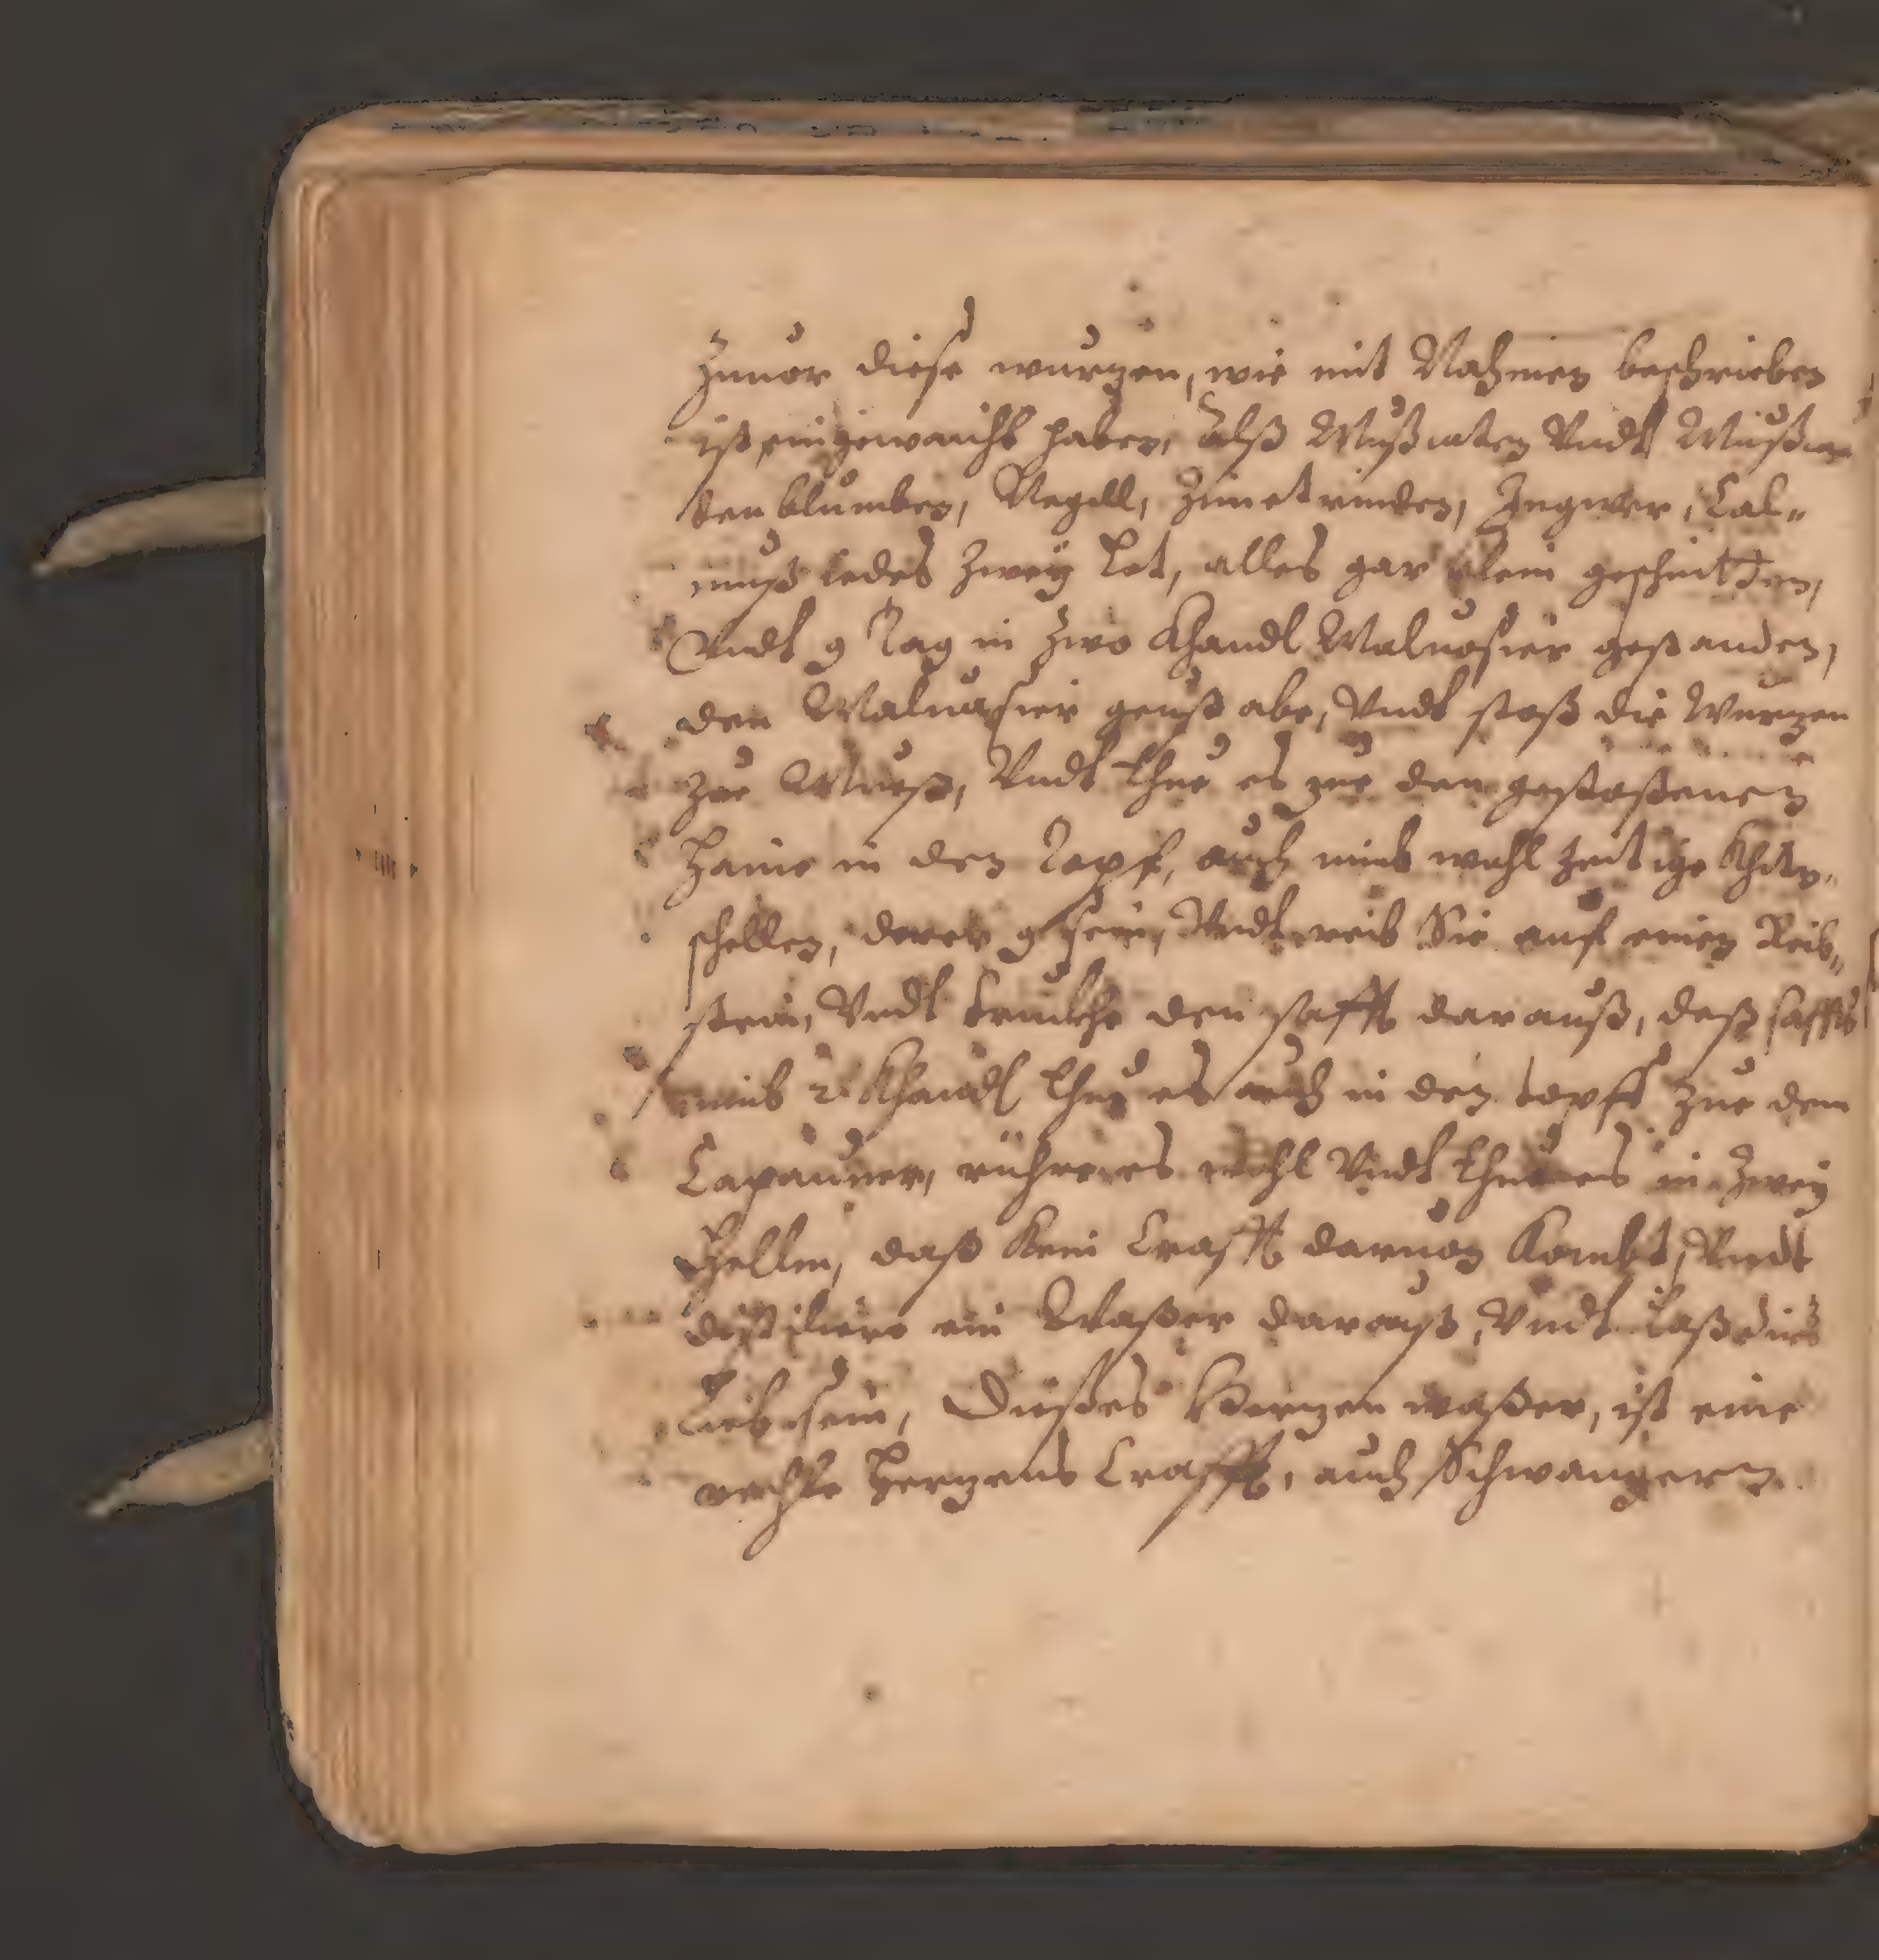 Zuuor diese wurzen, wie mit Nahmen beschrieben
ist, eingewaicht haben, Alß Mußcaten Vndt Mußca
ten blumben, Negell, Zimetrinden, Ingwer, Cal„
muß iedes Zwey Lot, alles gar klein geschnitten,
Vndt 9 Tag in Zwo Khandl Maluasier gestanden,
den Maluasier geuß abe, Vndt stoß die Wurzen
zue Mueß, Vndt thue es zue den gestoßenen
Hanne in den Topf, auch nimb wohl Zeitige
schellen, derer 9 sein, Vndt reib Sie auf einen Reib„
stein, Vndt trukhe den safft darauß, deß saffts
nimb 2 Khandl thue es auch in den topff zue dem
Capauner, rühre es wohl Vndt thue es in Zwey
Hellm, daß Kein Crafft daruon Kombt, Vndt
distiliere ein Waßer darauß, Vndt laß dirs
Lieb sein, Dießes Herzen waßer, ist eine
rechte Herzens Crafft, auch Schwangern